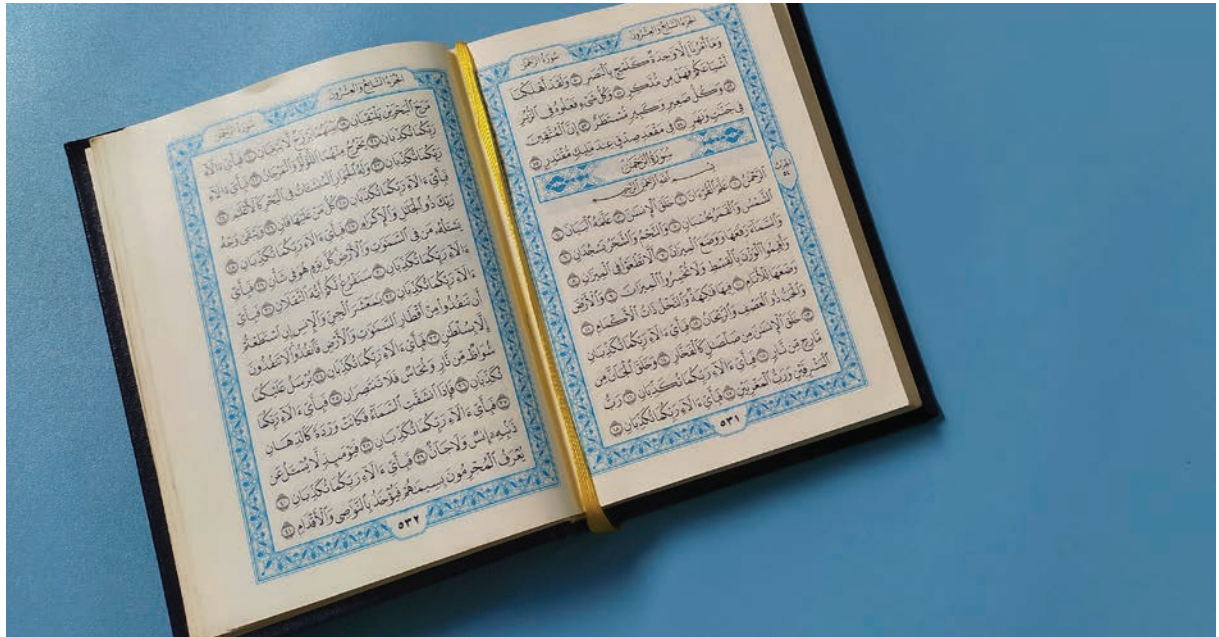 الجزء السابع والعشرون
سورة الرحمن
وَمَآ أَمْرُنَآ إِلَّا وَٰحِدَةٌ كَلَمْحٍۭ بِٱلْبَصَرِ ٥٠ وَلَقَدْ أَهْلَكْنَآ
أَشْيَاعَكُمْ فَهَلْ مِن مُّدَّكِرٍ ٥١ وَكُلُّ شَىْءٍ فَعَلُوهُ فِى ٱلزُّبُرِ
٥٢ وَكُلُّ صَغِيرٍ وَكَبِيرٍ مُّسْتَطَرٌ ٥٣ إِنَّ ٱلْمُتَّقِينَ
فِى جَنَّٰتٍ وَنَهَرٍ ٥٤ فِى مَقْعَدِ صِدْقٍ عِندَ مَلِيكٍ مُّقْتَدِرٍۭ ٥٥
سُورَةُ الرَّحْمَٰن
بِسْمِ ٱللَّهِ ٱلرَّحْمَٰنِ ٱلرَّحِيمِ
ٱلرَّحْمَٰنُ ١ عَلَّمَ ٱلْقُرْءَانَ ٢ خَلَقَ ٱلْإِنسَٰنَ ٣ عَلَّمَهُ ٱلْبَيَانَ ٤
ٱلشَّمْسُ وَٱلْقَمَرُ بِحُسْبَانٍ ٥ وَٱلنَّجْمُ وَٱلشَّجَرُ يَسْجُدَانِ ٦
وَٱلسَّمَآءَ رَفَعَهَا وَوَضَعَ ٱلْمِيزَانَ ٧ أَلَّا تَطْغَوْا۟ فِى ٱلْمِيزَانِ ٨
وَأَقِيمُوا۟ ٱلْوَزْنَ بِٱلْقِسْطِ وَلَا تُخْسِرُوا۟ ٱلْمِيزَانَ ٩ وَٱلْأَرْضَ
وَضَعَهَا لِلْأَنَامِ ١٠ فِيهَا فَٰكِهَةٌ وَٱلنَّخْلُ ذَاتُ ٱلْأَكْمَامِ ١١
وَٱلْحَبُّ ذُو ٱلْعَصْفِ وَٱلرَّيْحَانُ ١٢ فَبِأَىِّ ءَالَآءِ رَبِّكُمَا تُكَذِّبَانِ
١٣ خَلَقَ ٱلْإِنسَٰنَ مِن صَلْصَٰلٍ كَٱلْفَخَّارِ ١٤ وَخَلَقَ ٱلْجَآنَّ مِن
مَّارِجٍ مِّن نَّارٍ ١٥ فَبِأَىِّ ءَالَآءِ رَبِّكُمَا تُكَذِّبَانِ ١٦ رَبُّ
ٱلْمَشْرِقَيْنِ وَرَبُّ ٱلْمَغْرِبَيْنِ ١٧ فَبِأَىِّ ءَالَآءِ رَبِّكُمَا تُكَذِّبَانِ ١٨
٥٣١
الجزء السابع والعشرون
سورة الرحمن
مَرَجَ ٱلْبَحْرَيْنِ يَلْتَقِيَانِ ١٩ بَيْنَهُمَا بَرْزَخٌ لَّا يَبْغِيَانِ ٢٠ فَبِأَىِّ ءَالَآءِ
رَبِّكُمَا تُكَذِّبَانِ ٢١ يَخْرُجُ مِنْهُمَا ٱللُّؤْلُؤُ وَٱلْمَرْجَانُ ٢٢ فَبِأَىِّ ءَالَآءِ
رَبِّكُمَا تُكَذِّبَانِ ٢٣ وَلَهُ ٱلْجَوَارِ ٱلْمُنشَـَٔاتُ فِى ٱلْبَحْرِ كَٱلْأَعْلَٰمِ ٢٤
فَبِأَىِّ ءَالَآءِ رَبِّكُمَا تُكَذِّبَانِ ٢٥ كُلُّ مَنْ عَلَيْهَا فَانٍ ٢٦ وَيَبْقَىٰ وَجْهُ
رَبِّكَ ذُو ٱلْجَلَٰلِ وَٱلْإِكْرَامِ ٢٧ فَبِأَىِّ ءَالَآءِ رَبِّكُمَا تُكَذِّبَانِ ٢٨
يَسْـَٔلُهُۥ مَن فِى ٱلسَّمَٰوَٰتِ وَٱلْأَرْضِ كُلَّ يَوْمٍ هُوَ فِى شَأْنٍ ٢٩ فَبِأَىِّ
ءَالَآءِ رَبِّكُمَا تُكَذِّبَانِ ٣٠ سَنَفْرُغُ لَكُمْ أَيُّهَ ٱلثَّقَلَانِ ٣١ فَبِأَىِّ
ءَالَآءِ رَبِّكُمَا تُكَذِّبَانِ ٣٢ يَٰمَعْشَرَ ٱلْجِنِّ وَٱلْإِنسِ إِنِ ٱسْتَطَعْتُمْ
أَن تَنفُذُوا۟ مِنْ أَقْطَارِ ٱلسَّمَٰوَٰتِ وَٱلْأَرْضِ فَٱنفُذُوا۟ لَا تَنفُذُونَ
إِلَّا بِسُلْطَٰنٍ ٣٣ فَبِأَىِّ ءَالَآءِ رَبِّكُمَا تُكَذِّبَانِ ٣٤ يُرْسَلُ عَلَيْكُمَا
شُوَاظٌ مِّن نَّارٍ وَنُحَاسٌ فَلَا تَنتَصِرَانِ ٣٥ فَبِأَىِّ ءَالَآءِ رَبِّكُمَا
تُكَذِّبَانِ ٣٦ فَإِذَا ٱنشَقَّتِ ٱلسَّمَآءُ فَكَانَتْ وَرْدَةً كَٱلدِّهَانِ
٣٧ فَبِأَىِّ ءَالَآءِ رَبِّكُمَا تُكَذِّبَانِ ٣٨ فَيَوْمَئِذٍ لَّا يُسْـَٔلُ عَن
ذَنۢبِهِۦٓ إِنسٌ وَلَا جَآنٌّ ٣٩ فَبِأَىِّ ءَالَآءِ رَبِّكُمَا تُكَذِّبَانِ ٤٠
يُعْرَفُ ٱلْمُجْرِمُونَ بِسِيمَٰهُمْ فَيُؤْخَذُ بِٱلنَّوَٰصِى وَٱلْأَقْدَامِ ٤١
٥٣٢